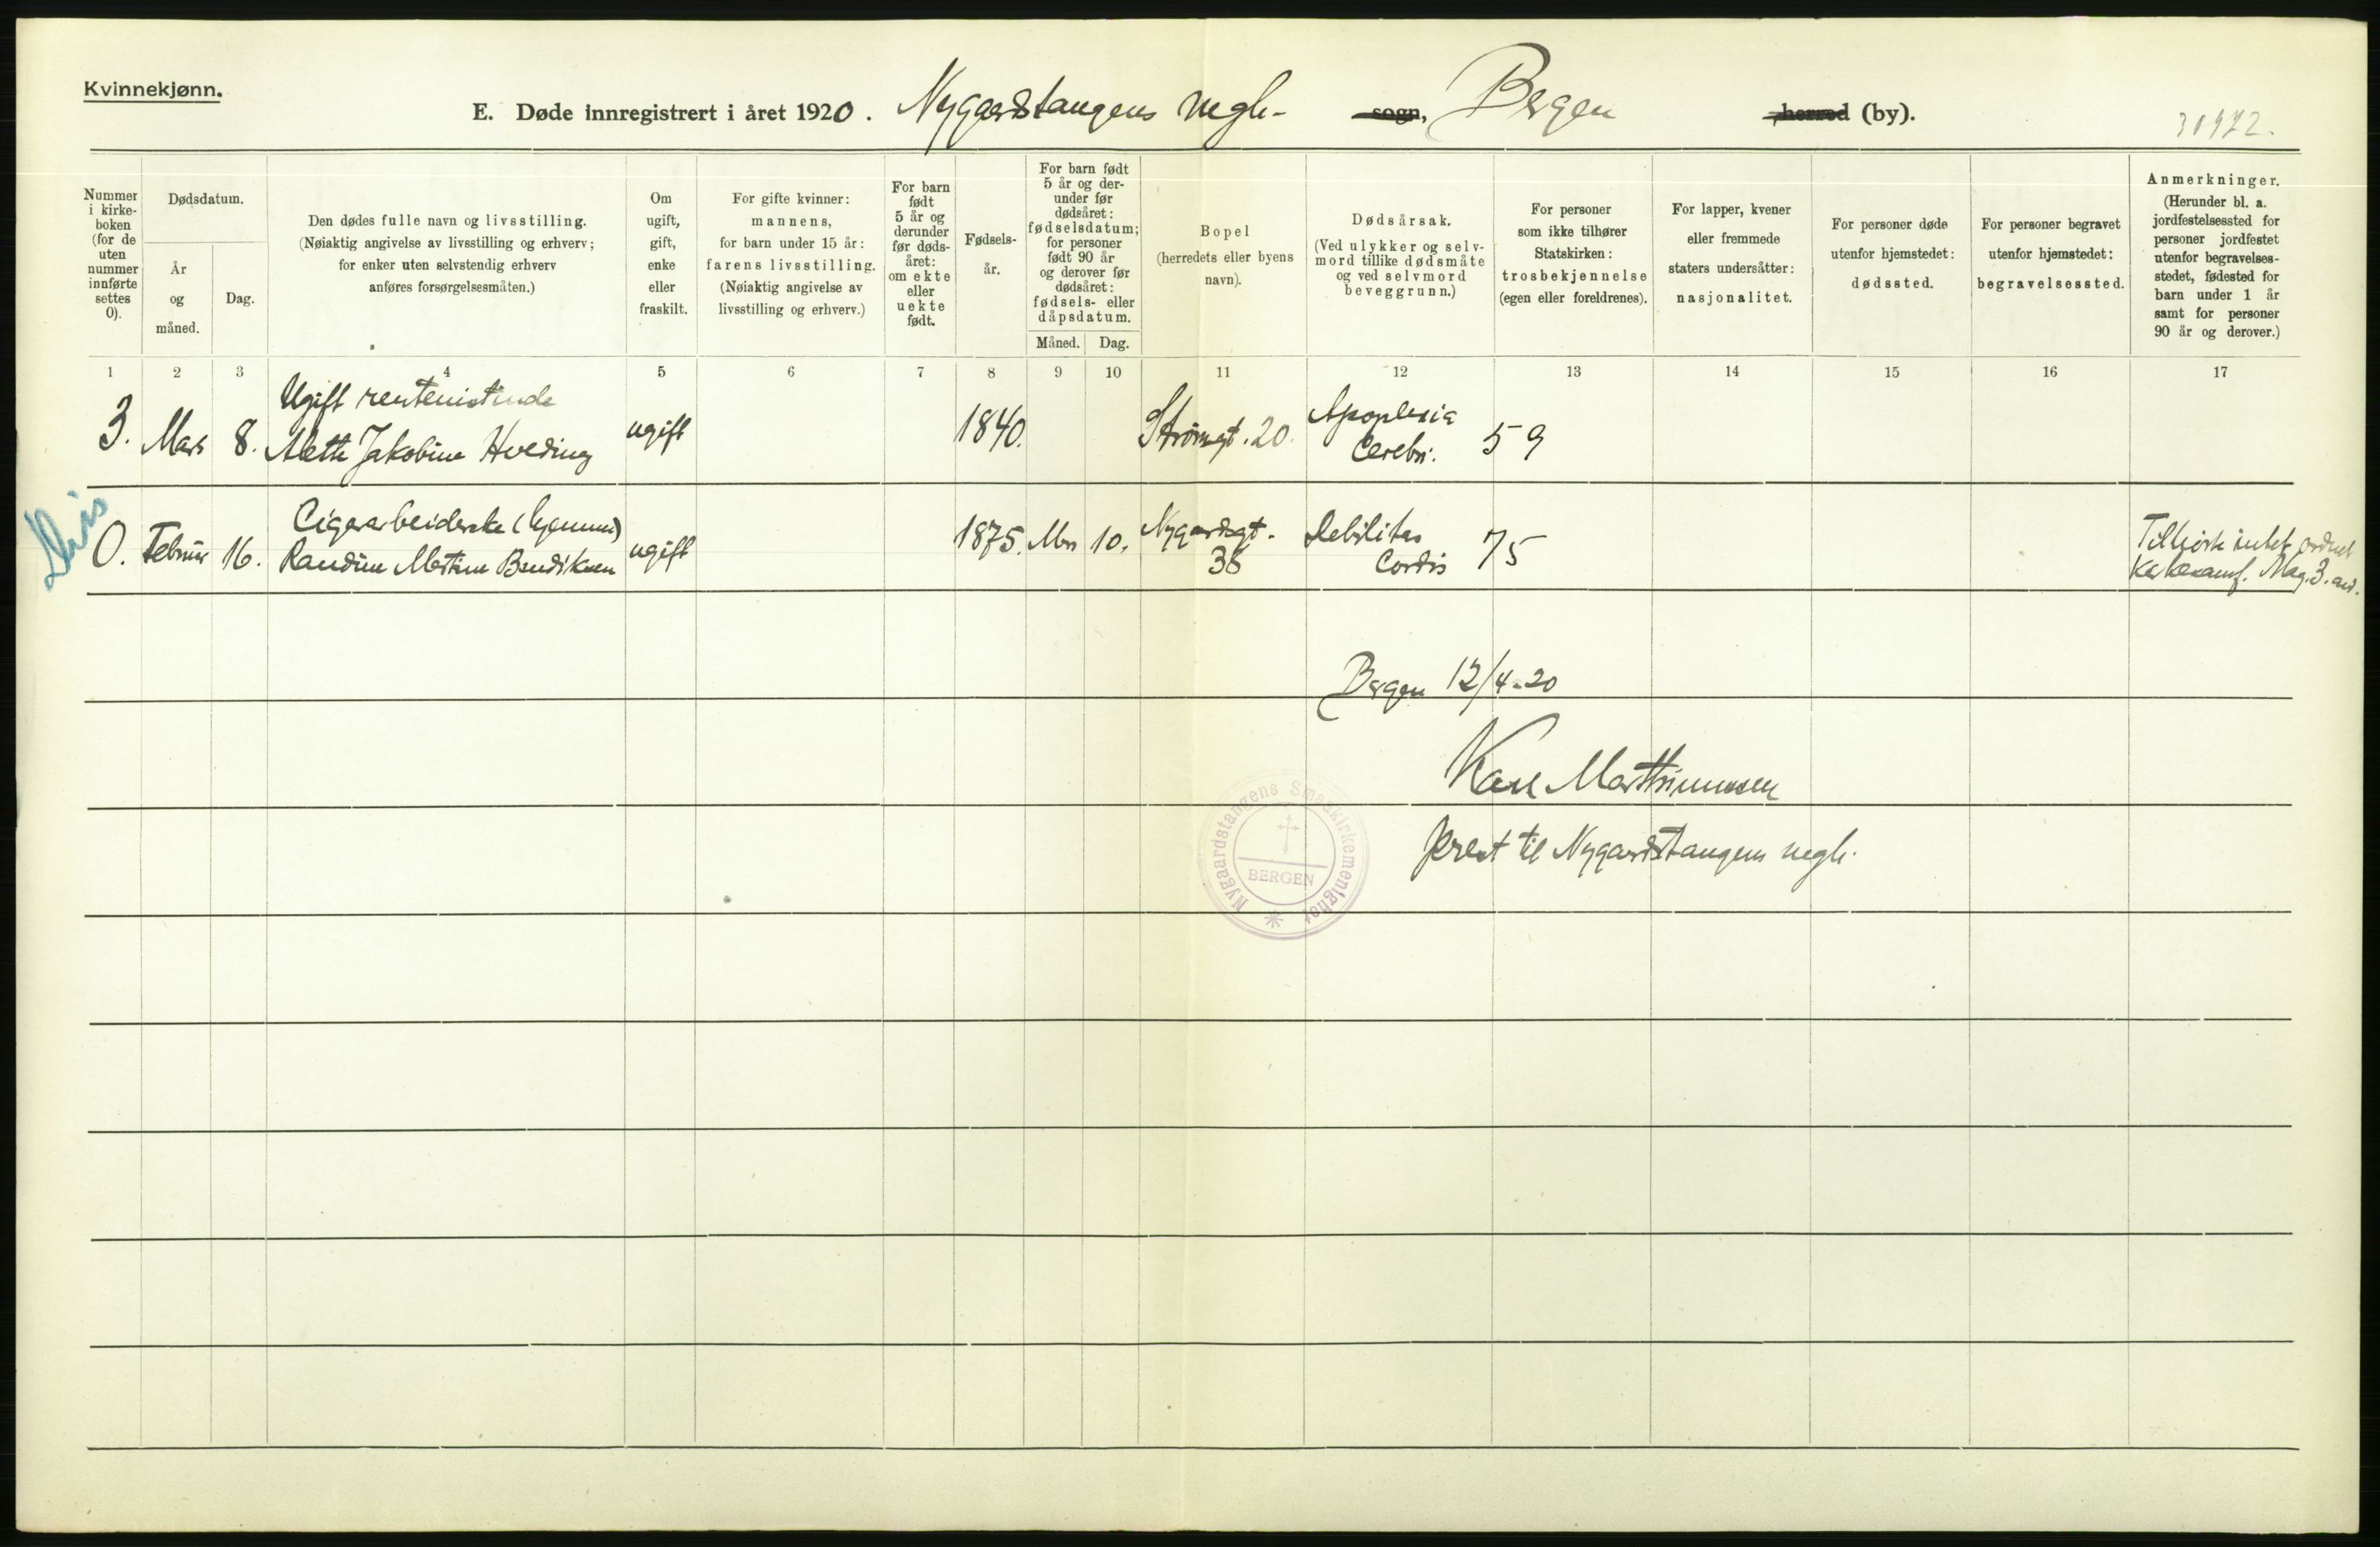 Kvinnekjønn.
E. Døde innregistrert i året 1920. Nygaardstangens megh. sogn, Bergen herred (by).
Nummer i kirke-boken (for de uten nummer innførte settes 0).
Dødsdatum.
År og måned.
Dag.
Den dødes fulle navn og livsstilling.
(Nøiaktig angivelse av livsstilling og erhverv;
for enker uten selvstendig erhverv
anføres forsørgelsesmåten.)
Om ugift, gift, enke eller fraskilt.
For gifte kvinner:
mannens,
for barn under 15 år:
farens livsstilling.
(Nøiaktig angivelse av
livsstilling og erhverv.)
For barn født 5 år og derunder før døds-året: om ekte eller uekte født.
Fødsels-år.
For barn født 5 år og der-under før dødsåret: fødselsdatum; for personer født 90 år og derover før dødsåret: fødsels- eller dåpsdatum.
Måned. Dag.
Bopel
(herredets eller byens
navn).
Dødsårsak.
(Ved ulykker og selv-
mord tillike dødsmåte
og ved selvmord
beveggrunn.)
For personer
som ikke tilhører
Statskirken:
trosbekjennelse
(egen eller foreldrenes).
For lapper, kvener
eller fremmede
staters undersåtter:
nasjonalitet.
For personer døde
utenfor hjemstedet:
dødssted.
For personer begravet
utenfor hjemstedet:
begravelsessted.
Anmerkninger.
(Herunder bl. a.
jordfestelsessted for
personer jordfestet
utenfor begravelses-
stedet, fødested for
barn under 1 år
samt for personer
90 år og derover.)
1 2 3 4 5 6 7 8 9 10 11 12 13 14 15 16 17
Ugift rentenistinde
3. Mars 8. Alette Jakobine Hveding ugift 1840. Strømgt. 20. Apoplexia
Cerebri. 59
Cigararbeiderske (hjemme)
0. Februar 16. Randine Martine Bendiksen ugift 1875. Mars 10. Nygaardsgt.
38 Debilitas
Cordis 75
Tilhørte intet ordnet
Kirkesamf.
Bergen 12/4-20
Karl Marthinussen
prest til Nygaardstangens megh.
Nygaardstangens Smaakirkemenighet
BERGEN